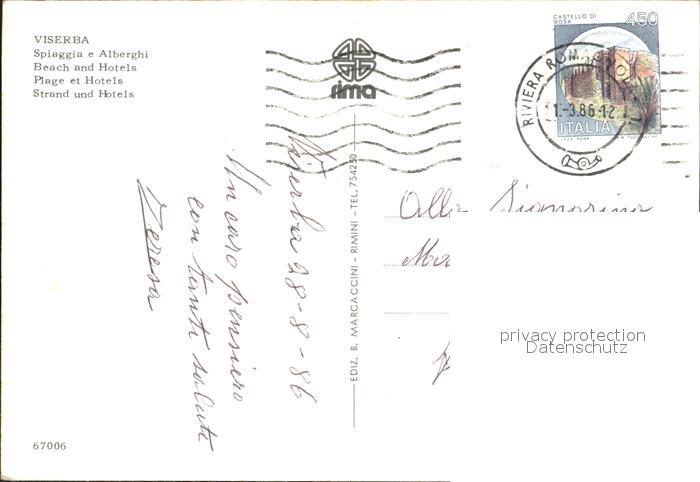 VISERBA
Spiaggia e Alberghi
Beach and Hotels
Plage et Hotels
Strand und Hotels
rima
CASTELLO DI
BOSA
450
ITALIA
RIVIERA ROMAGNOLA
Viserba 28-8-86
Un caro pensiero
con tanti saluti
Teresa
EDIZ. B. MARCACCINI - RIMINI - TEL. 754250
Alla Signorina
Ma
privacy protection
Datenschutz
67006